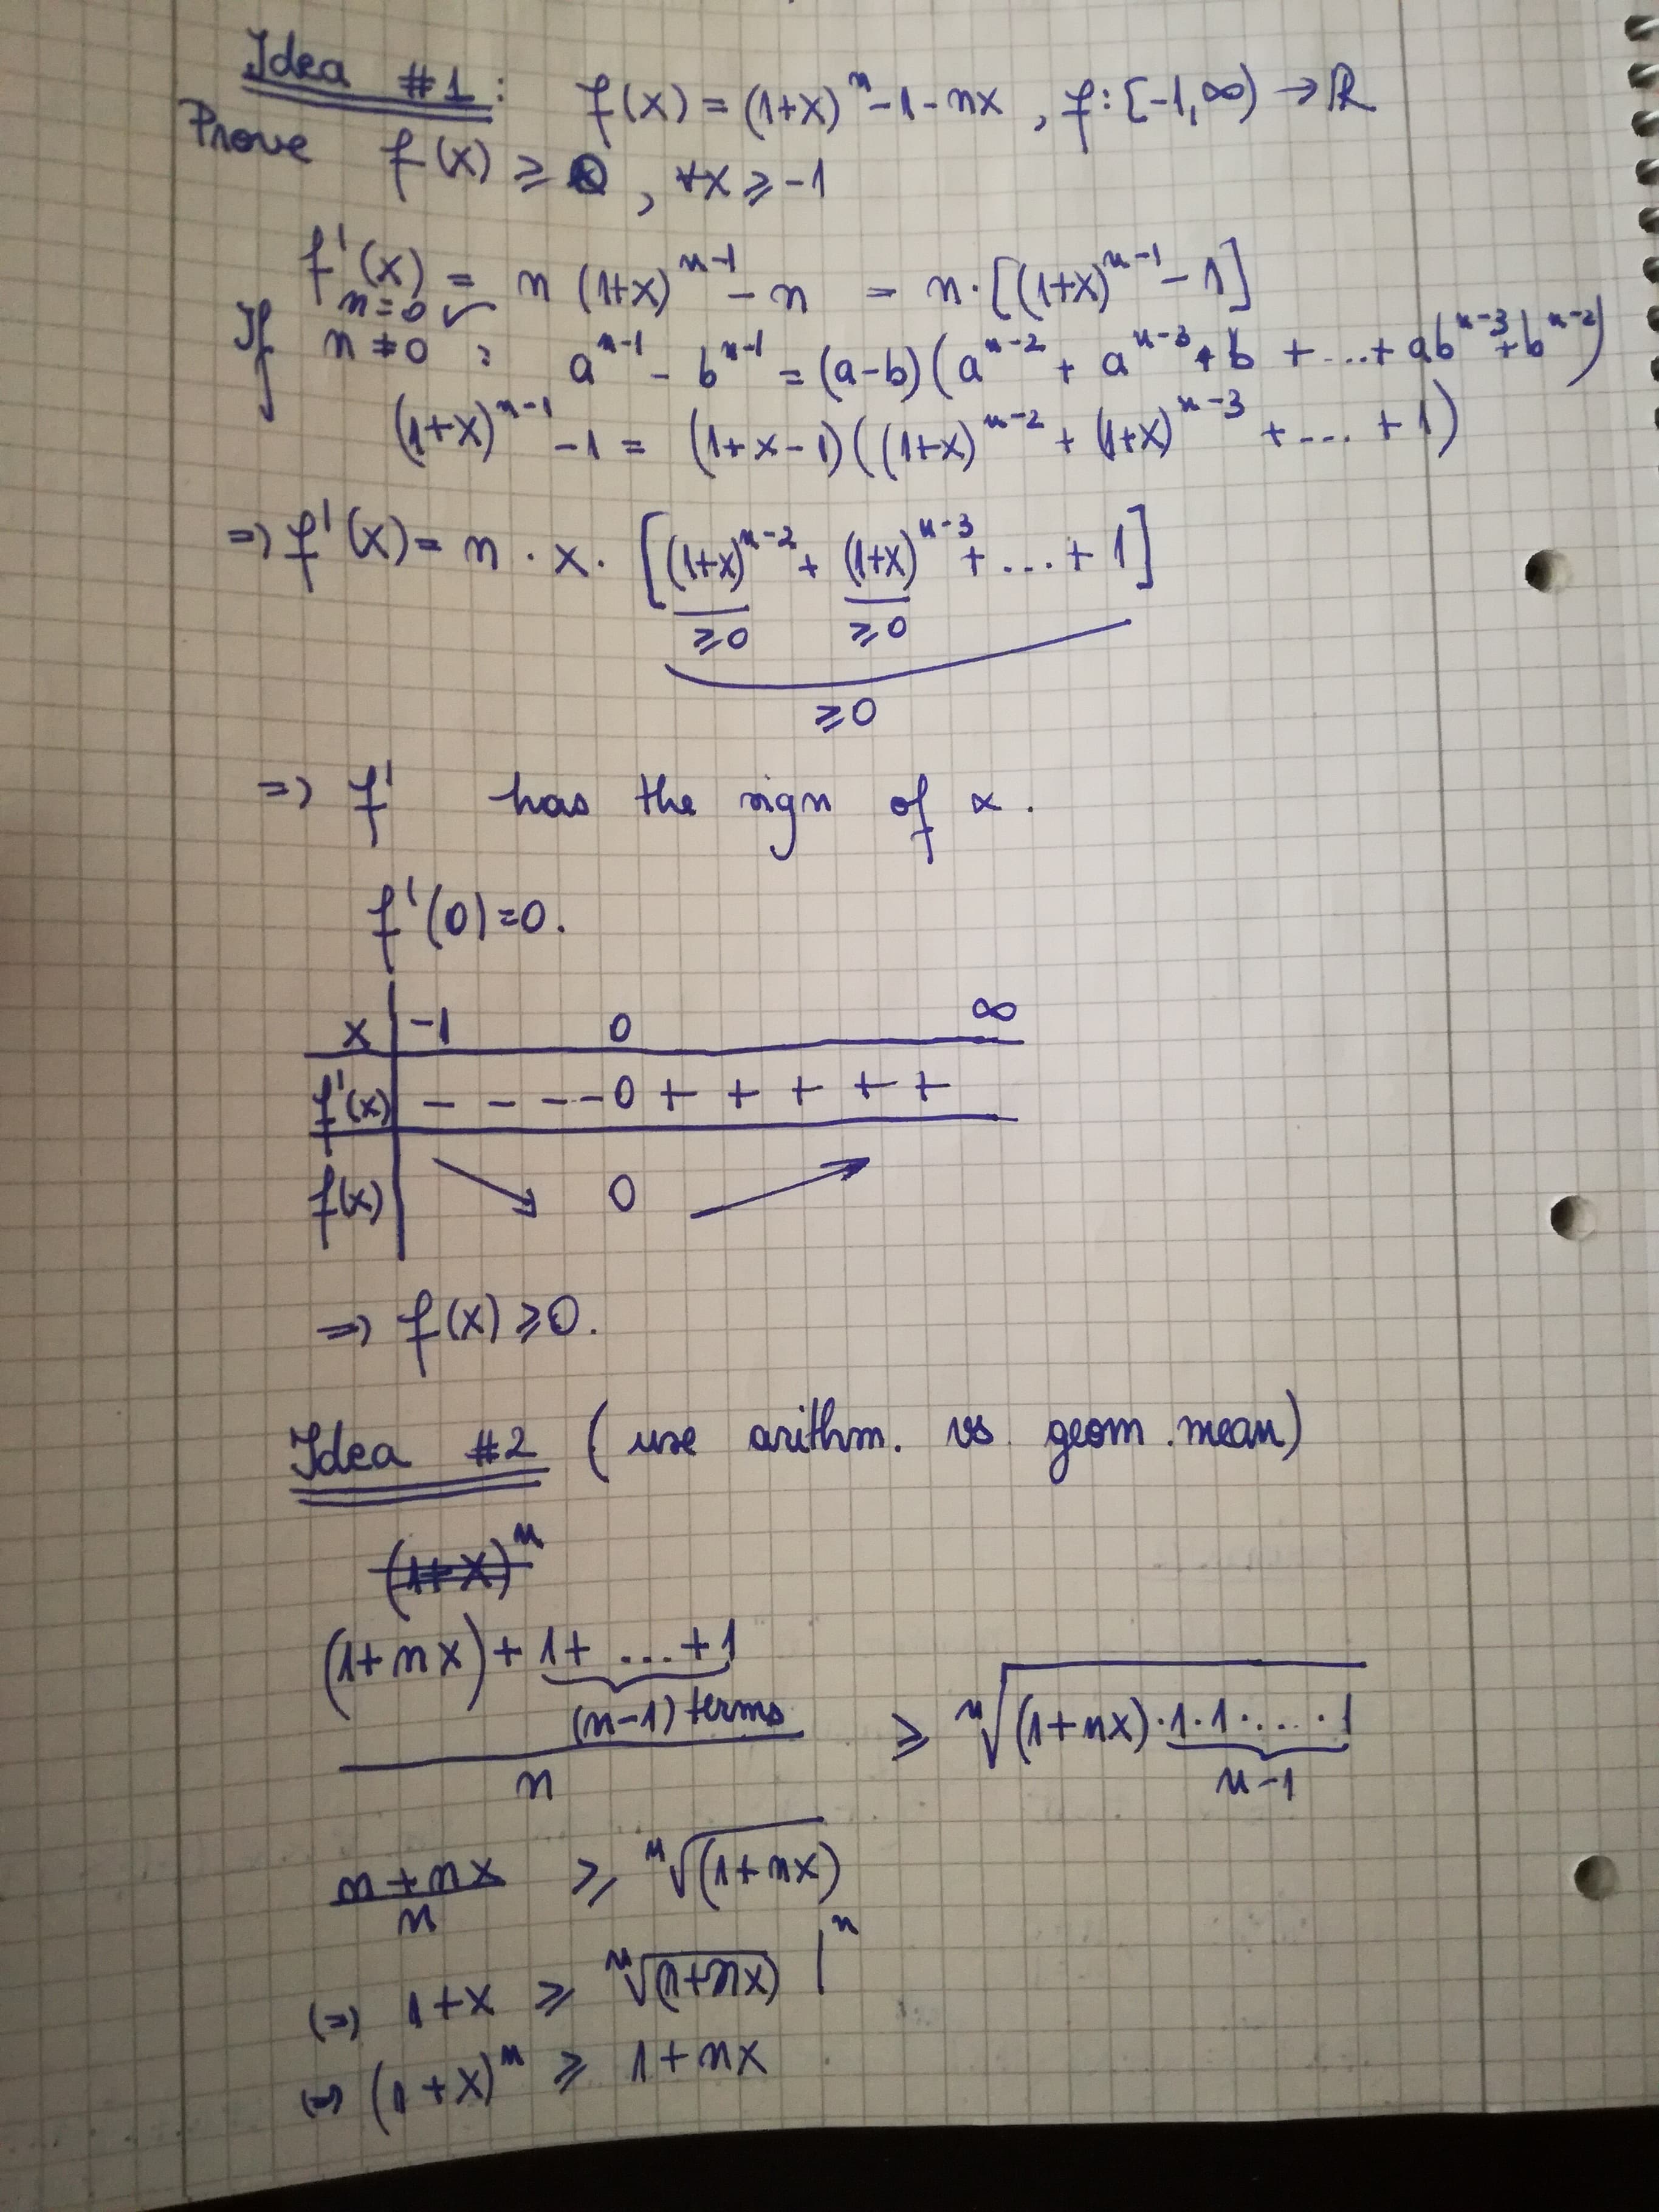 Idea #1: f(x) = (1+x)^n - 1 - nx , f: [-1,∞) → ℝ
Prove f(x) ≥ 0 , ∀x ≥ -1
f'(x) = n (1+x)^{n-1} - n = n·[(1+x)^{n-1} - 1]
n=0 ✓
If n≠0 : a^{n-1} - b^{n-1} = (a-b)(a^{n-2} + a^{n-3}·b + ... + ab^{n-3} + b^{n-2})
(1+x)^{n-1} - 1 = (1+x-1)((1+x)^{n-2} + (1+x)^{n-3} + ... + 1)
=> f'(x) = n · x · [(1+x)^{n-2} + (1+x)^{n-3} + ... + 1]
≥0 ≥0
≥0
=> f' has the sign of x.
f'(0)=0.
x | -1 0 ∞
f'(x) | - - - - 0 + + + + +
f(x) | ↘ 0 ↗
=> f(x) ≥ 0.
Idea #2 (use arithm. vs geom. mean)
(1+x)^n
(1+nx) + 1 + ... + 1
(n-1) terms
n
≥ \sqrt[n]{(1+nx)·1·1·...·1}
n-1
\frac{n+nx}{n} ≥ \sqrt[n]{(1+nx)}
(=) 1+x ≥ \sqrt[n]{(1+nx)} |^n
(=) (1+x)^n ≥ 1+nx